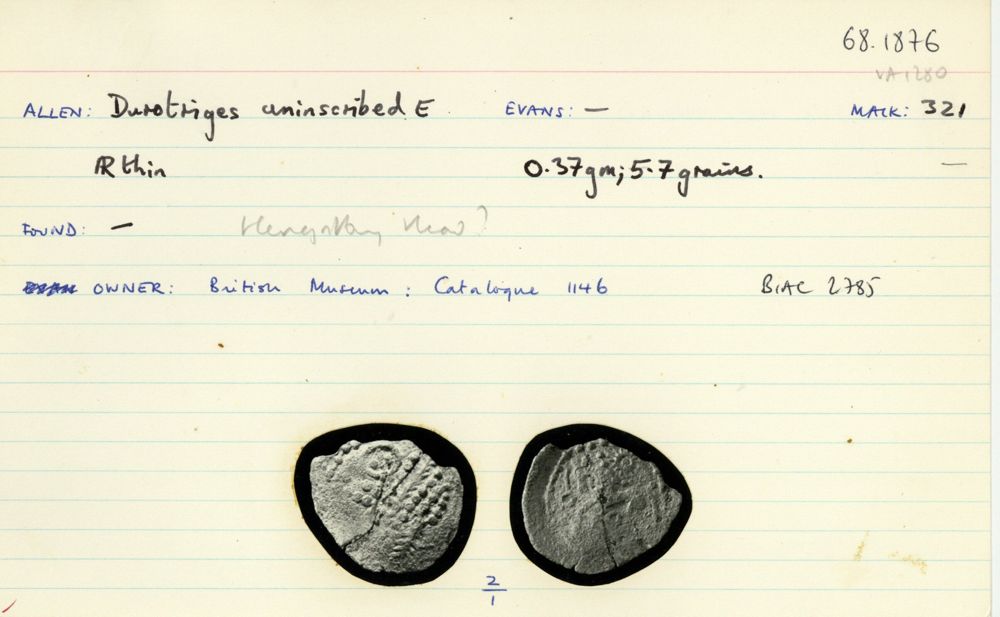 68.1876
VA 1280
ALLEN: Durotriges uninscribed E EVANS: — MACK: 321
ÆR thin 0.37gm; 5.7 grains. —
FOUND: — Hengistbury Head?
OWNER: British Museum: Catalogue 1146 BIAC 2785
2/1